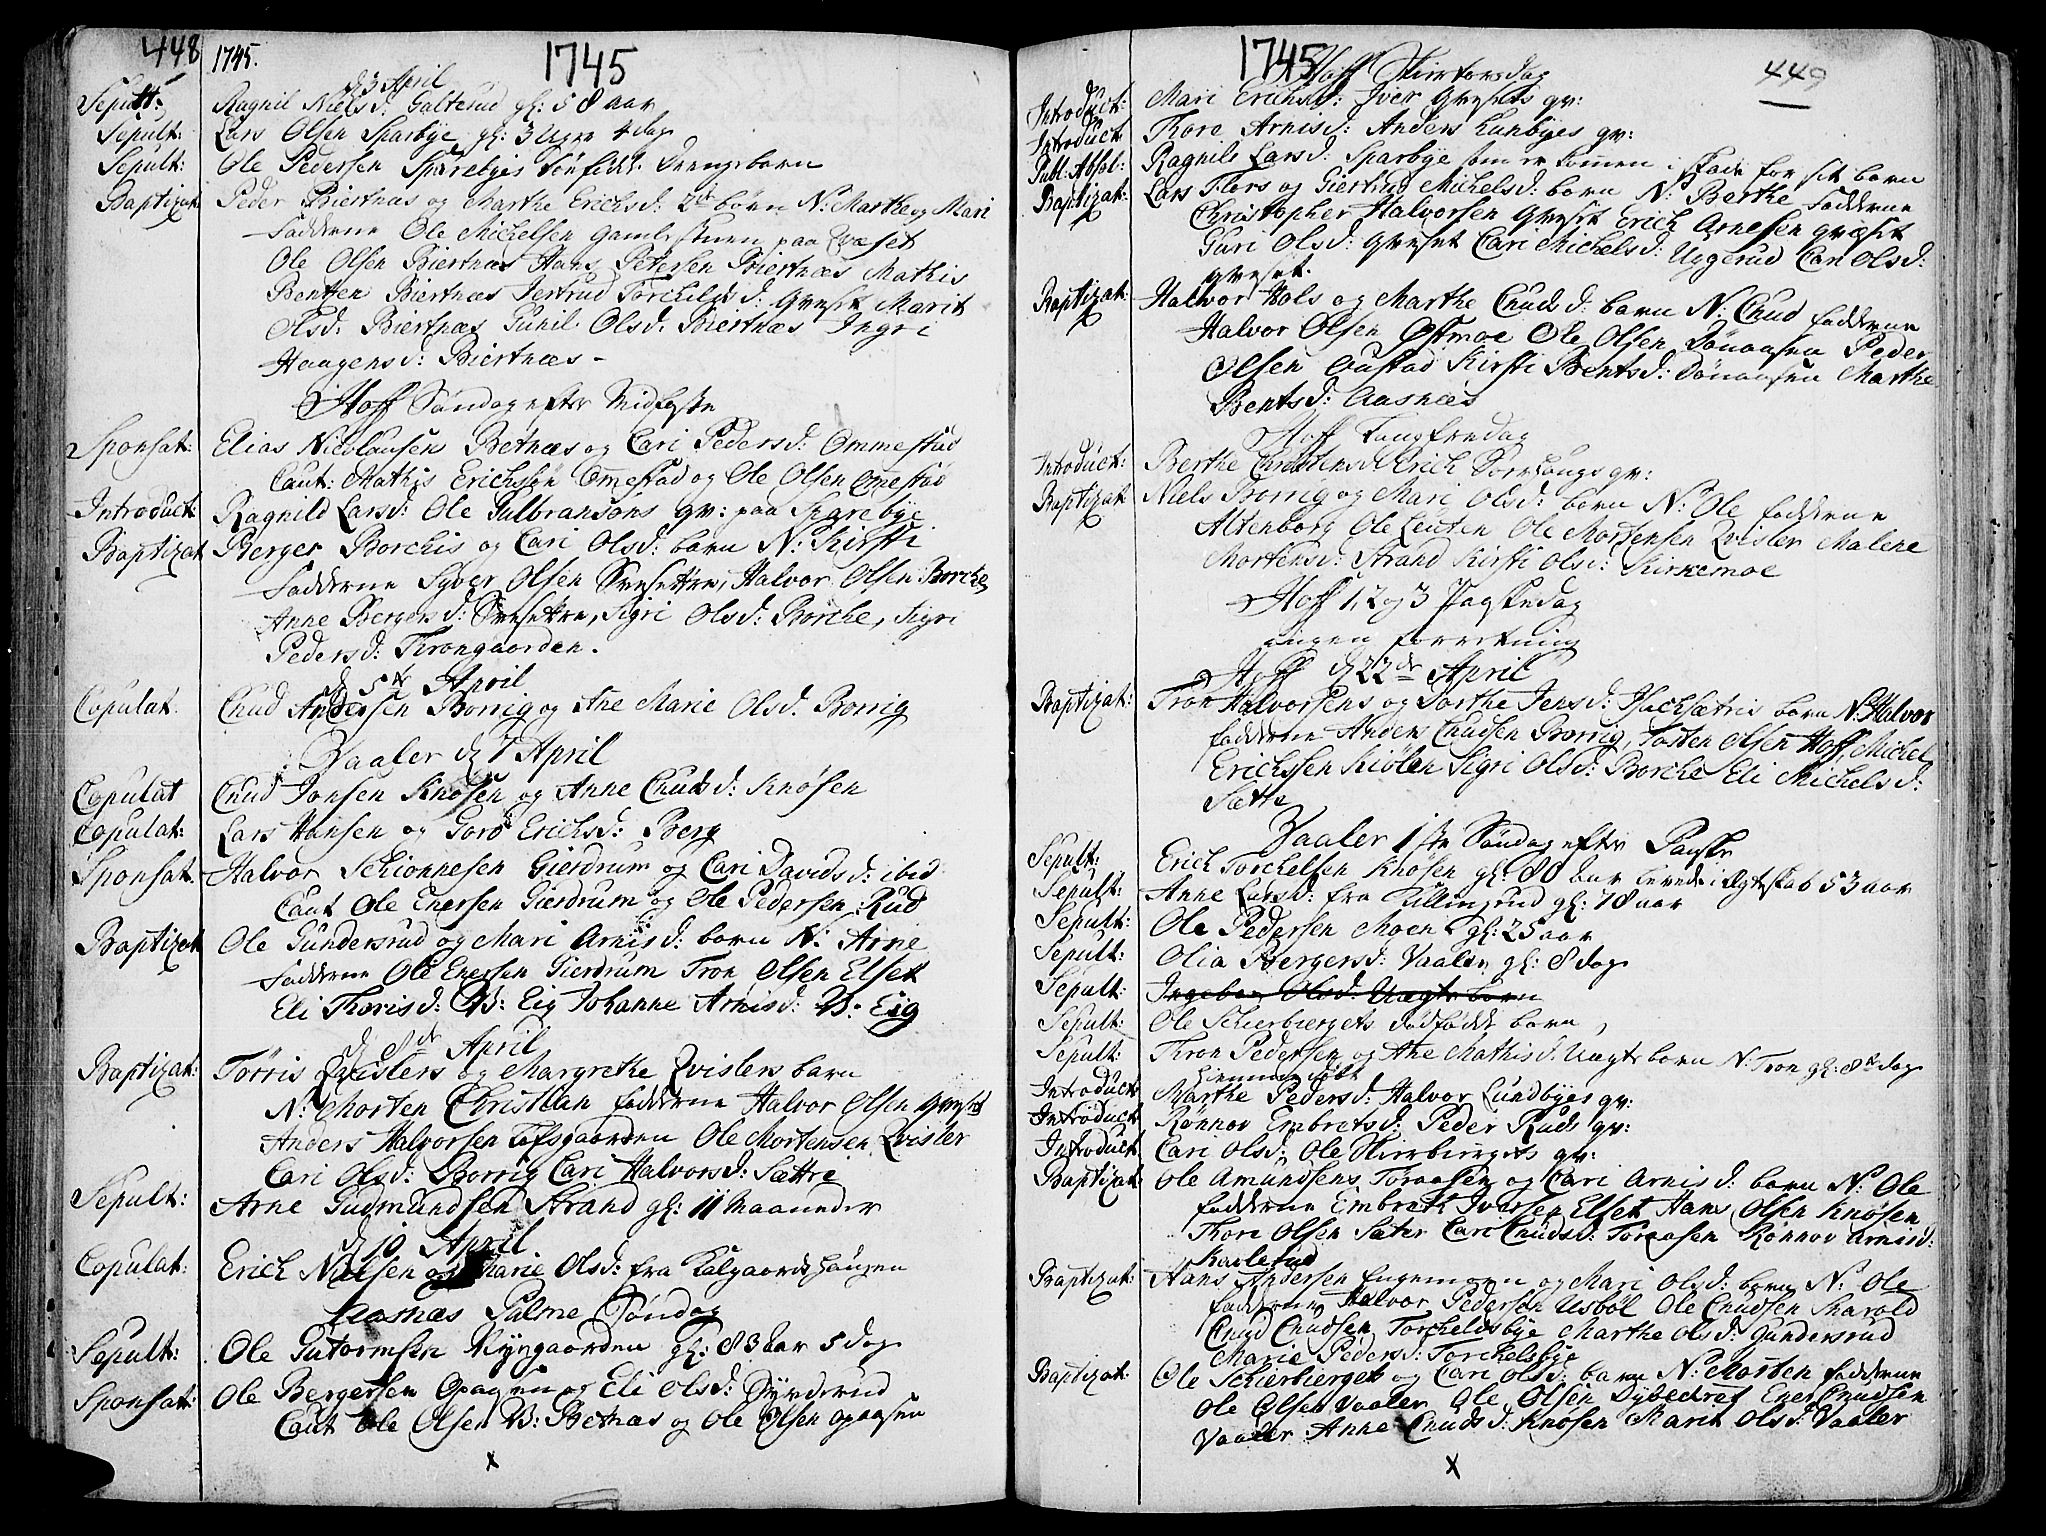 448 1745. 1745
d 3 April
Sepult: Ragnil Nielsd: Galterud gl: 58 aar
Sepult: Lars Olsen Sparbye gl: 3 Uger 4 dag
Sepult: Ole Pedersen Sparebyes drengebarn
Baptizat Peder Biertnæs og Marthe Erichsd: 2de børn N: Marthe og Mari
Fadderne Ole Michelsen Gamlestuen paa Qvæset
Ole Olsen Biertnæs Hans Petersen Biertnæs Mathis
Bentsen Biertnæs Jertrud Torchelsd: Gveset Marit
Olsd: Biertnæs Gunil Olsd. Biertnæs Ingri
Haagensd: Biertnæs -
Hoff Søndag efter Midfaste
Sponsat: Elias Nicolausen Betnæs og Cari Pedersd: Ommestad
Caut: Mathis Erichsen Omestad og Ole Olsen Omestad
Introduct: Ragnild Larsd: Ole Gulbransøns qv: paa Sparebye
Baptizat Berger Borchis og Cari Olsd: barn N: Kirsti
Fadderne Syver Olsen Svesettre, Halvor Olsen Borche
Anne Bergersd: Svesettre, Sigri Olsd: Borche, Sigri
Pedersd: Throngaarden.
d 5te April
Copulat. Cnud Andersen Borrig og Ane Marie Olsd. Borrig
Vaaler d 7 April
Copulat Cnud Jonsen Knøsen og Anne Cnudsd: Knøsen
Copulat: Lars Hansen og Goro Erichsd: Berg
Sponsat. Halvor Schionnesen Gierdrum og Cari Davidsd: ibid
Caut Ole Enersen Gierdrum og Ole Pedersen Rud
Baptizat Ole Gundersrud og Mari Arnisd: barn N: Arne
Fadderne Ole Enersen Gierdrum Tron Olsen Elset
Eli Thorisd: B: Eig Johanne Arnisd: B: Eig
d 8de April
Baptizat: Tørris Qvislers og Margrethe Qvislers barn
N: Morten Christian fadderne Halvor Olsen Gveset
Anders Halvorsen Tofsgaarden Ole Mortensen Qvisler
Cari Olsd: Borrig Cari Halvorsd: Sættre
Sepult: Arne Gudmundsen Strand gl: 11 Maaneder
d 10 April
Copulat: Erich Nielsen og Marie Olsd: fra Kalgaardshaugen
Aasnæs Palme Søndag
Sepult: Ole Gutormsen Nyngaarden gl: 83 aar 5 dag
Sponsat: Ole Bergersen Opagen og Eli Olsd: Syrderud
Caut Ole Olsen B: Betnæs og Ole Olsen Opagsen
x
1745 449
Hoff Skiertorsdag
Introduct: Mari Erichsd: Iver Gvesets qv:
Introduct Thore Arnisd: Anders Lunbyes qv:
Publ: Absol: Ragnild Larsd: Sparbye som er kommen i skade for sit barn
Baptizat: Lars Flors og Giertrud Michelsd: barn N: Berthe Fadderne
Christopher Halvorsen Gveset Erich Arnesen Gvæset
Guri Olsd: Gveset Cari Michelsd: Uggerud Cari Olsd:
Gveset.
Baptizat: Halvor Hols og Marthe Cnudsd: barn N: Cnud fadderne
Halvor Olsen Ostmoe Ole Olsen Dønaasen Peder
Olsen Oustad Kirsti Bentsd: Dønaasen Marthe
Bentsd: Aasnæs
Hoff Langfredag
Introduct: Berthe Christensd Erich Sorrhougs qv:
Baptizat Niels Borrig og Mari Olsd: barn N: Ole fadderne
Altenborg Ole Leuten Ole Mortensen Qvisler Malene
Mortensd: Strand Kirsti Olsd: Kirkemoe
Hoff 1, 2 og 3 Paaskedag
ingen forretning
Hoff d 22de April
Baptizat: Tron Halvorsens og Dorthe Jensd: Hachsætris barn N: Halvor
fadderne Anders Cnudsen Borrig, Tosten Olsen Hoff, Michel
Erichssen Kiølen Sigri Olsd: Borche Eli Michelsd:
Sætte
Vaaler 1ste Søndag efter Paaske
Sepult: Erich Torchelsen Knøsen gl: 80 aar levede i Egteskab 53 aar
Sepult: Anne Larsd: fra Gullingsrud gl: 78 aar
Sepult: Ole Pedersen Moen gl: 25 aar
Sepult: Olia Bergersd: Vaaler gl: 8 dag
Sepult: Ingebor Olsd: Uægte barn
Sepult: Ole Schierbiergets dødfødde barn
Sepult: Thron Pedersen og Ane Mathisd: Uægte barn N: Tron gl: 8te dag
hiemmedøbt
Introduct Marthe Pedersd: Halvor Lundbyes qv:
Introduct Rønnov Embretsd: Peder Ruds qv:
Introduct Cari Olsd: Ole Skierbiergets qv:
Baptizat Ole Amundsens Toraasen og Cari Arnisd: barn N: Ole
fadderne Embreth Iversen Elset Hans Olsen Knøsen
Thore Olsen Sæter Cari Cnudsd: Toraasen Rønnov Arnisd:
Karlerud
Baptizat: Hans Andersen Engemoen og Mari Olsd: barn N: Ole
fadderne Halvor Pedersen Usbøl Ole Cnudsen Skarold
Cnud Cnudsen Torcheldsbye Marthe Olsd: Gundersrud
Marie Pedersd: Torchelsbye
Baptizat: Ole Schierbierget og Cari Olsd: barn N: Morten fadderne
Ole Olsen Vaaler Ole Olsen Dybedref Ener Cnudsen
Vaaler Anne Cnudsd: Knøsen Marit Olsd: Vaaler
x